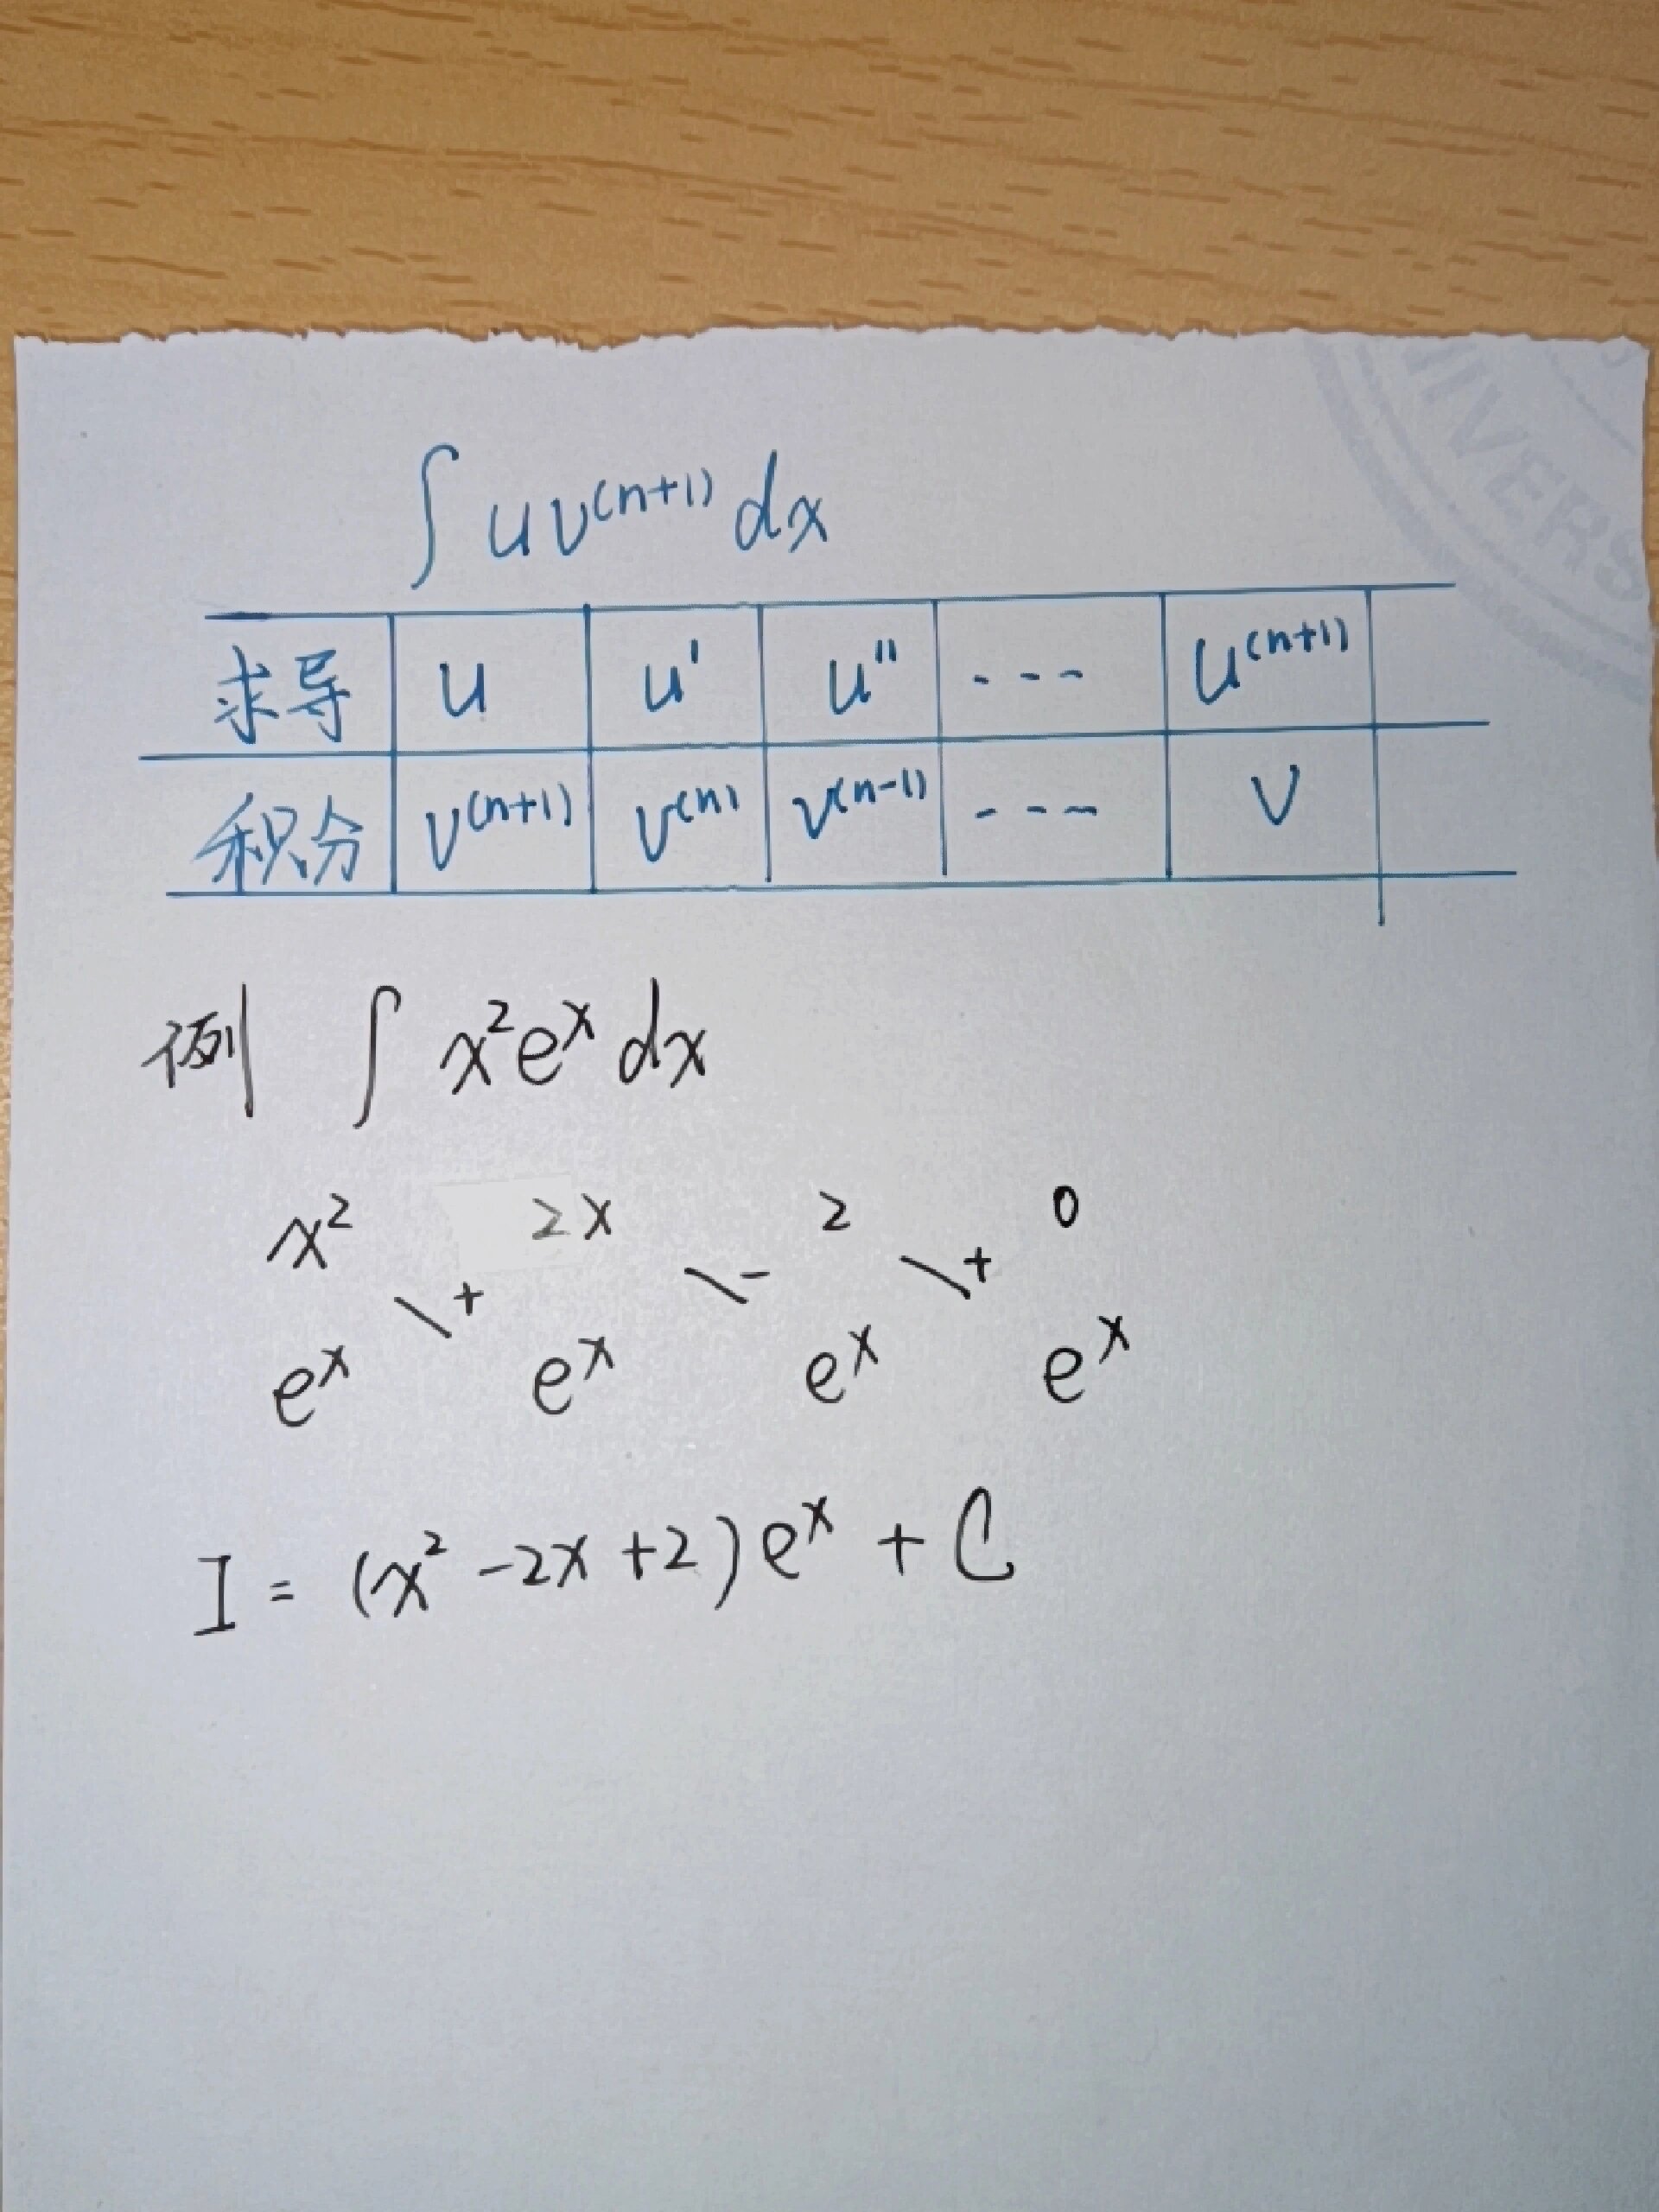 ∫ u v^(n+1) dx
求导 u u' u'' --- u^(n+1)
积分 v^(n+1) v^(n) v^(n-1) --- v
例 ∫ x²e^x dx
x² 2x 2 0
\+ \- \+
e^x e^x e^x e^x
I = (x² -2x +2)e^x + C